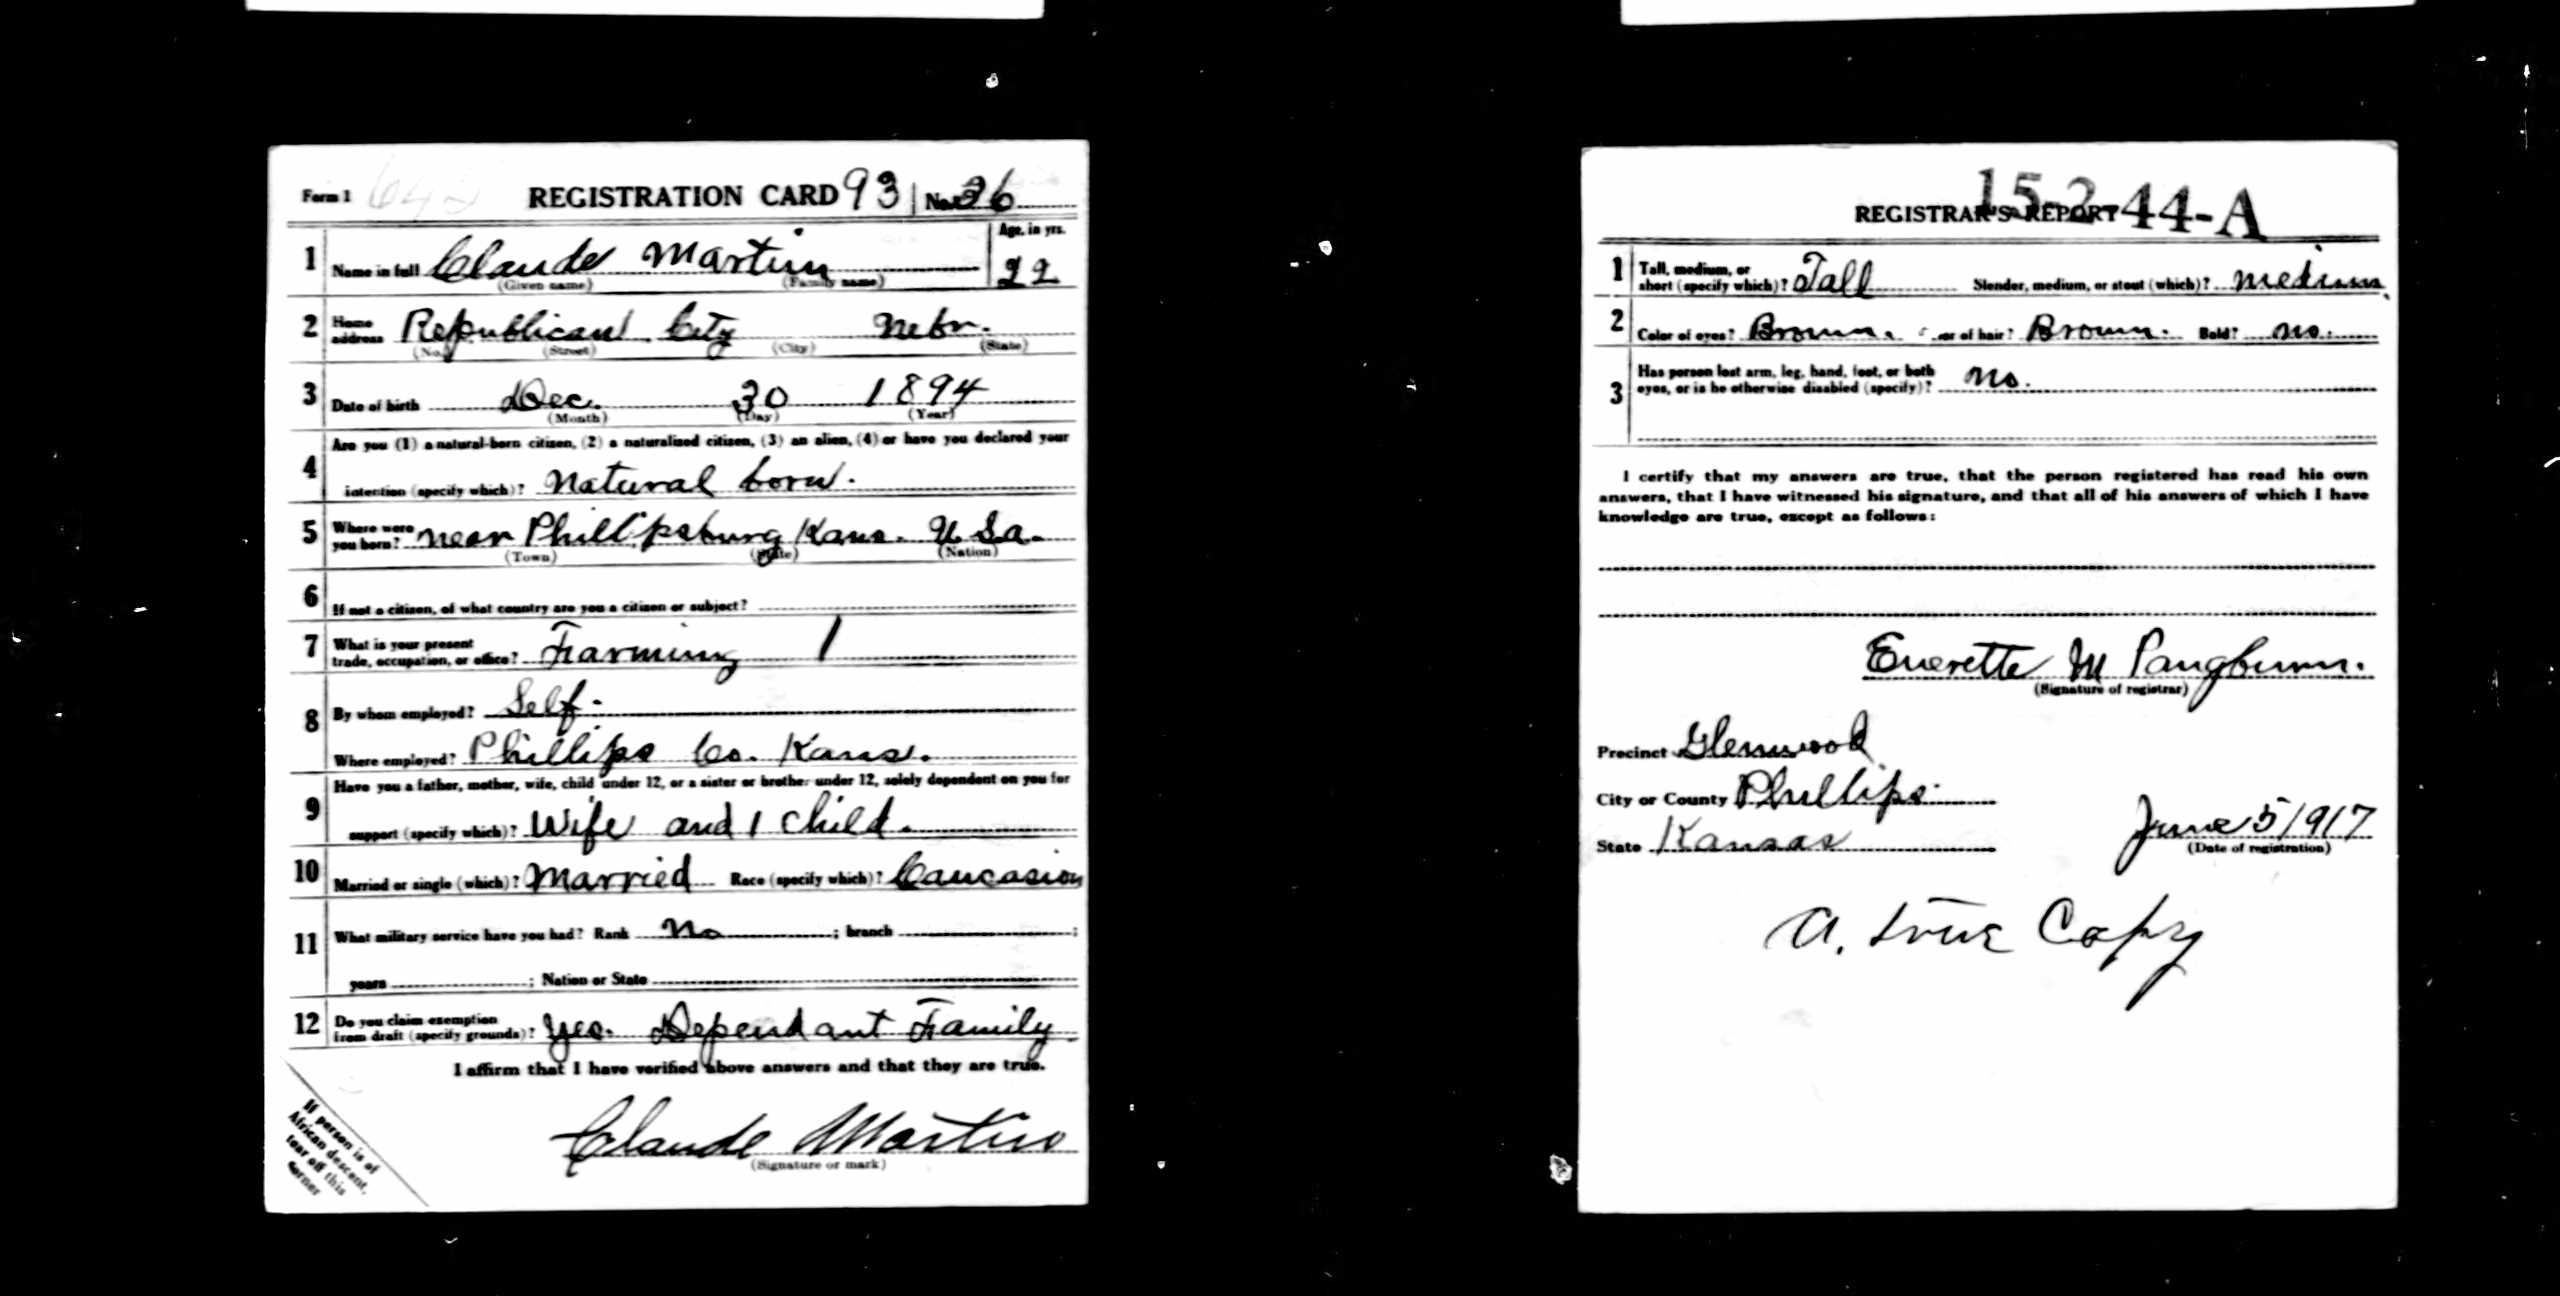 Form 1 642 REGISTRATION CARD 93 No. 26
1 Name in full Claude Martin Age, in yrs. 22
(Given name) (Family name)
2 Home address Republican City Nebr.
(No.) (Street) (City) (State)
3 Date of birth Dec. 30 1894
(Month) (Day) (Year)
Are you (1) a natural-born citizen, (2) a naturalized citizen, (3) an alien, (4) or have you declared your
4 intention (specify which)? Natural born.
5 Where were you born? near Phillipsburg Kans. U.S.a.
(Town) (State) (Nation)
6 If not a citizen, of what country are you a citizen or subject?
7 What is your present
trade, occupation, or office? Farming 1
8 By whom employed? Self.
Where employed? Phillips Co. Kans.
Have you a father, mother, wife, child under 12, or a sister or brother under 12, solely dependent on you for
9 support (specify which)? Wife and 1 child.
10 Married or single (which)? Married Race (specify which)? Caucasion
11 What military service have you had? Rank No ; branch ;
years ; Nation or State
12 Do you claim exemption
from draft (specify grounds)? Yes. Dependant Family.
I affirm that I have verified above answers and that they are true.
Claude Martin
(Signature or mark)
If person is of
African descent,
tear off this
corner
15-2-44-A
REGISTRAR'S REPORT
1 Tall, medium, or
short (specify which)? Tall Slender, medium, or stout (which)? medium
2 Color of eyes? Brown. or of hair? Brown. Bald? no.
3 Has person lost arm, leg, hand, foot, or both
eyes, or is he otherwise disabled (specify)? no.
I certify that my answers are true, that the person registered has read his own
answers, that I have witnessed his signature, and that all of his answers of which I have
knowledge are true, except as follows:
Everette M Pangburn.
(Signature of registrar)
Precinct Glenwood
City or County Phillips.
State Kansas June 5 1917
(Date of registration)
A. true Copy